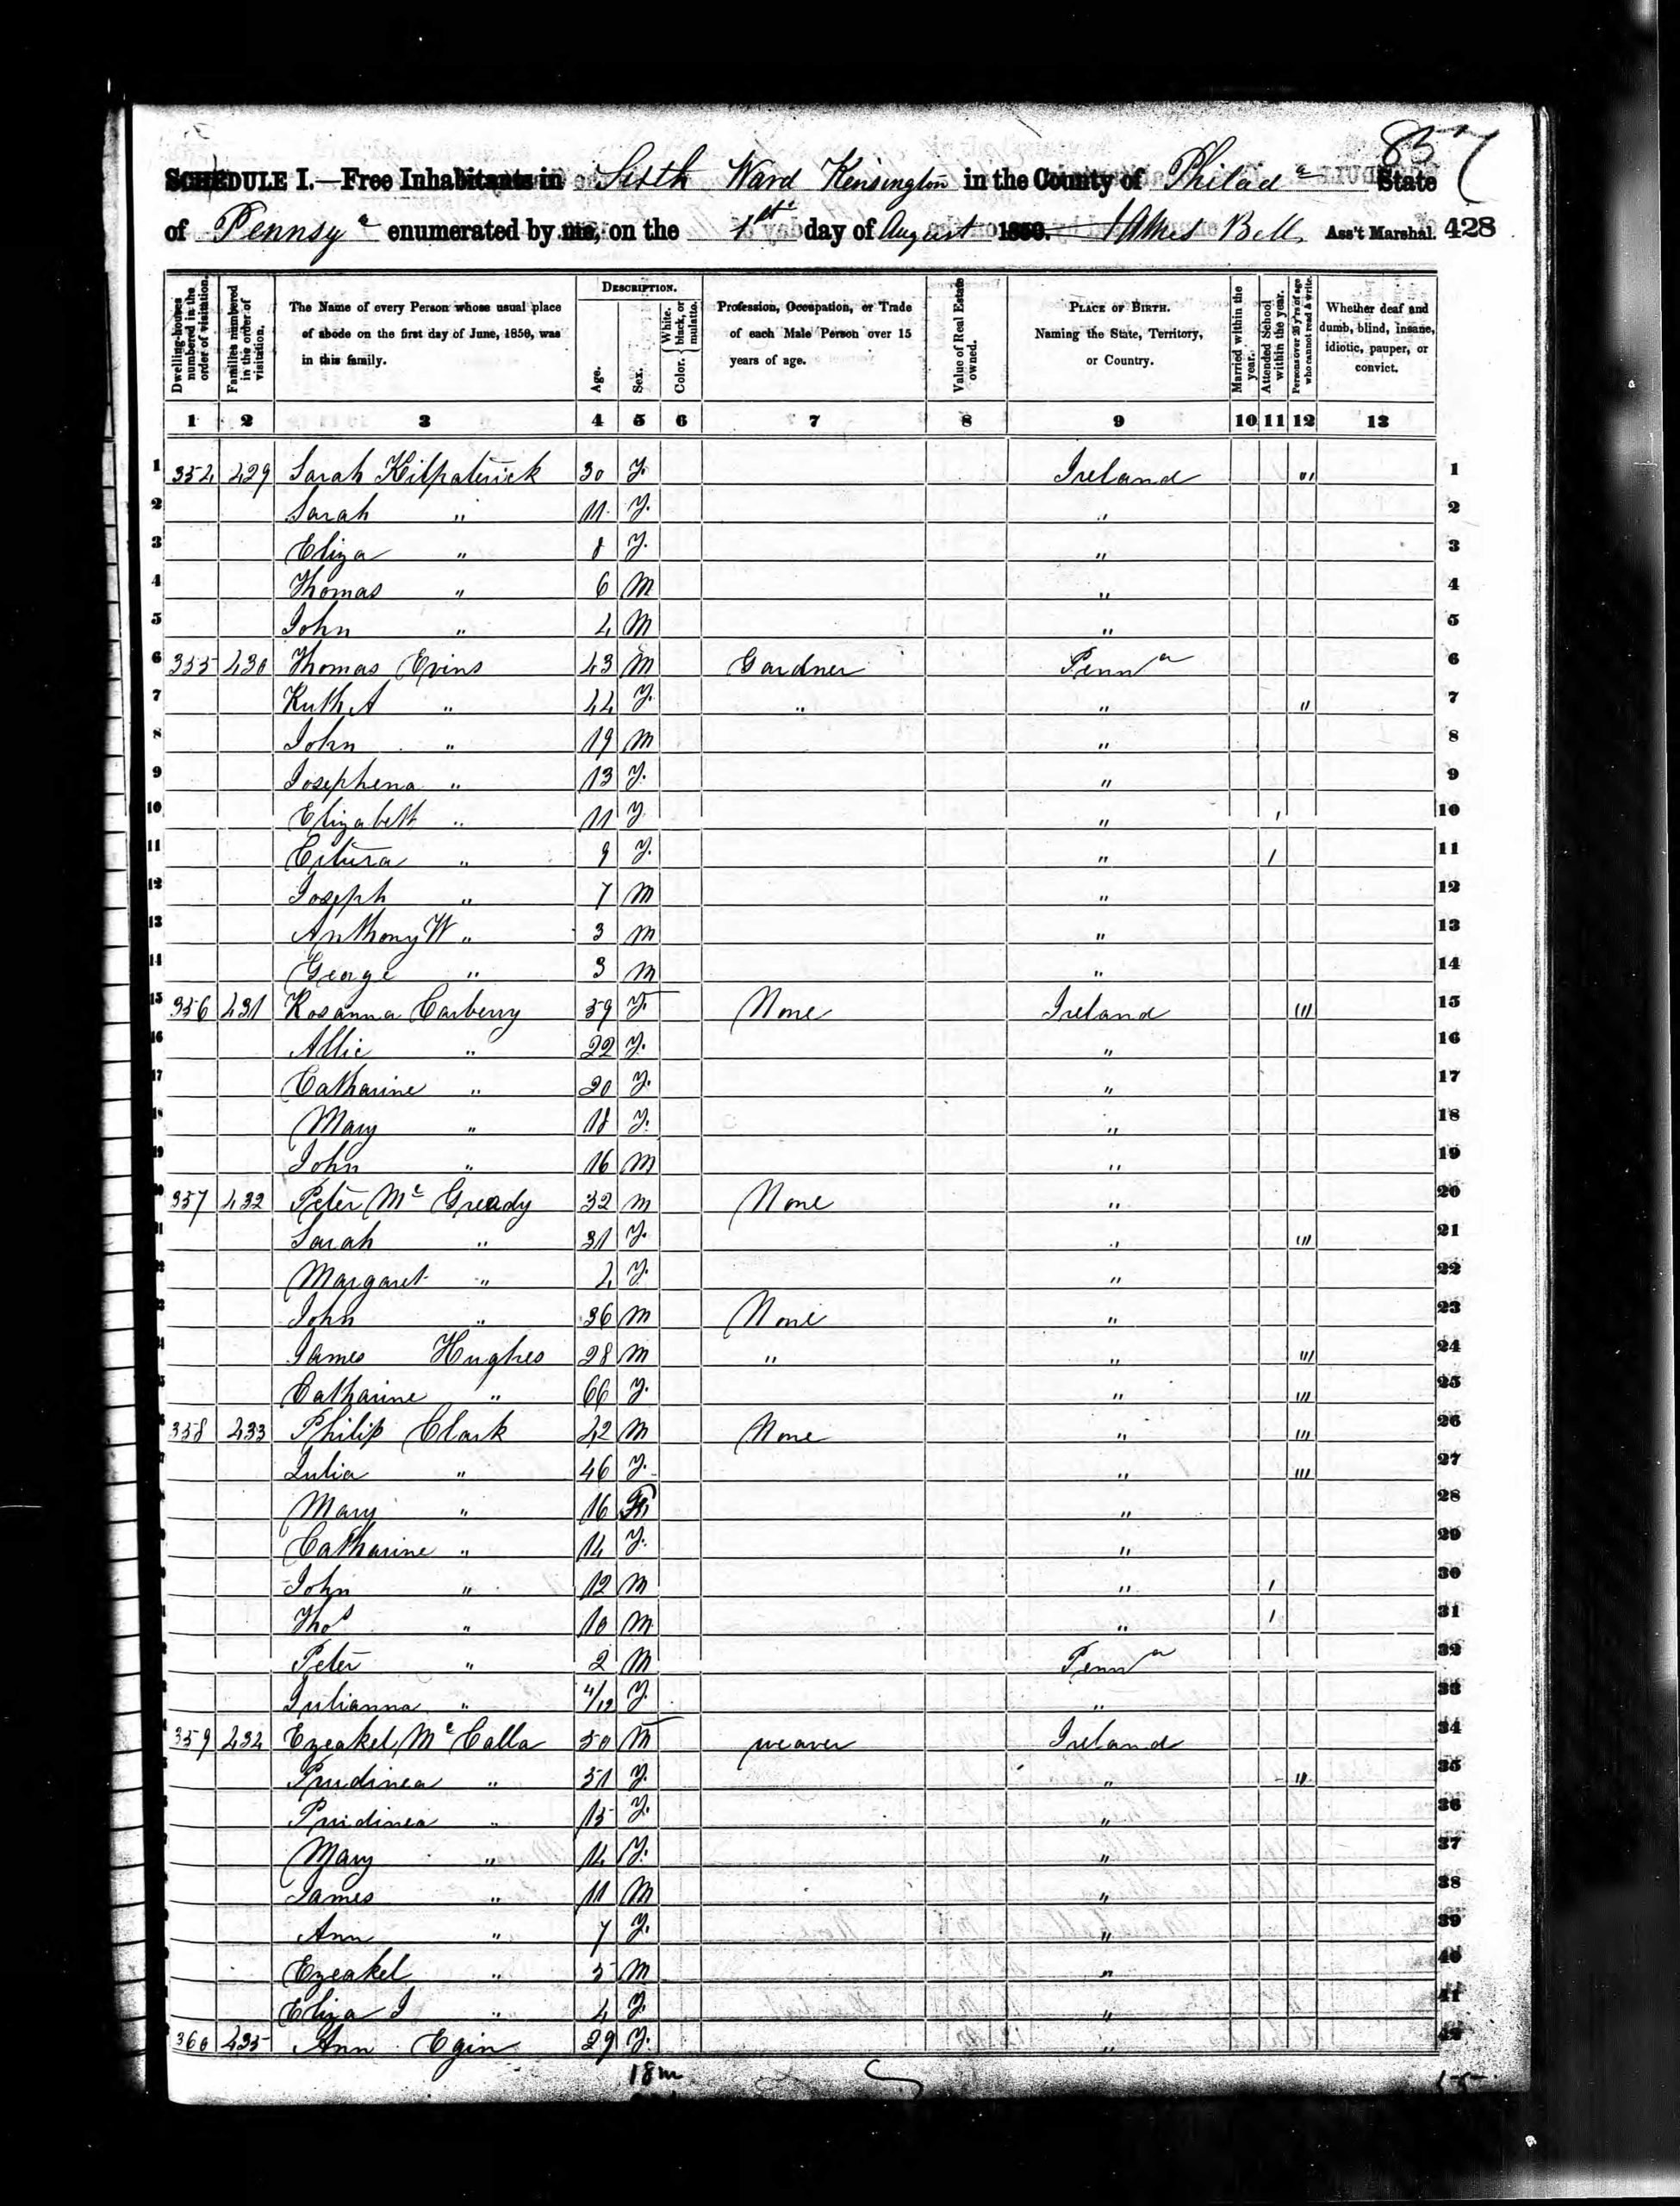 857
SCHEDULE I.—Free Inhabitants in Sixth Ward Kensington in the County of Philada State
of Pennsya enumerated by me, on the 1st day of August 1850. James Bell Ass't Marshal. 428
Dwelling-houses numbered in the order of visitation.
Families numbered in the order of visitation.
The Name of every Person whose usual place of abode on the first day of June, 1850, was in this family.
DESCRIPTION.
Age.
Sex.
Color. White, black, or mulatto.
Profession, Occupation, or Trade of each Male Person over 15 years of age.
Value of Real Estate owned.
PLACE OF BIRTH. Naming the State, Territory, or Country.
Married within the year.
Attended School within the year.
Persons over 20 y'rs of age who cannot read & write.
Whether deaf and dumb, blind, insane, idiotic, pauper, or convict.
1 2 3 4 5 6 7 8 9 10 11 12 13
1 354 429 Sarah Kilpaterick 30 F. Ireland "' 1
2 Sarah " 11 F. " 2
3 Eliza " 8 F. " 3
4 Thomas " 6 M " 4
5 John " 4 M " 5
6 355 430 Thomas Evins 43 M Gardner Penna 6
7 Ruth A " 44 F. " " " 7
8 John " 19 M " 8
9 Josephena " 13 F. " 9
10 Elizabeth " 11 F " 1 10
11 " 9 F. " 1 11
12 Joseph " 7 M " 12
13 Anthony W " 3 M " 13
14 George " 3 M " 14
15 356 431 Rosanna Carberry 59 F. None Ireland "' 15
16 Allic " 22 F. " 16
17 Catharine " 20 F. " 17
18 Mary " 18 F. " 18
19 John " 16 M " 19
357 432 Peter Mc Gready 32 M None " 20
Sarah " 31 F. " "' 21
Margaret " 4 F. " 22
John " 36 M None " 23
James Hughes 28 M " " "' 24
Catharine " 66 F. " "' 25
358 433 Philip Clark 42 M None " "' 26
Julia " 46 F. " "' 27
Mary " 16 F " 28
Catharine " 14 F. " 29
John " 12 M " 1 30
Thos " 10 M " 1 31
Peter " 2 M Penna 32
Julianna " 4/12 F. " 33
359 434 Ezeakel Mc Calla 50 M weaver Ireland 34
Prudinea " 51 F. " " 35
Prudinea " 15 F. " 36
Mary " 14 F. " 37
James " 11 M " 38
Ann " 7 F. " 39
Ezeakel " 5 M " 40
Eliza J " 4 F. " 41
360 435 Ann Egin 29 F. " 42
18m